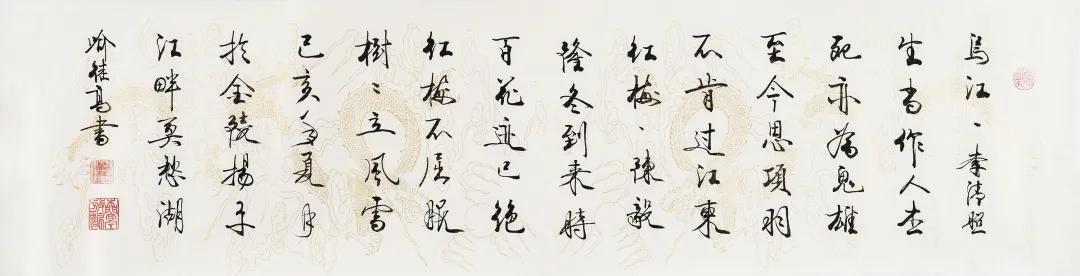 烏江、李清照
生当作人杰
死亦為鬼雄
至今思項羽
不肯过江東
红梅、陳毅
隆冬到来時
百花迹已绝
红梅不屈服
樹々立風雪
己亥年夏月
於金陵揚子
江畔莫愁湖
喻继高書